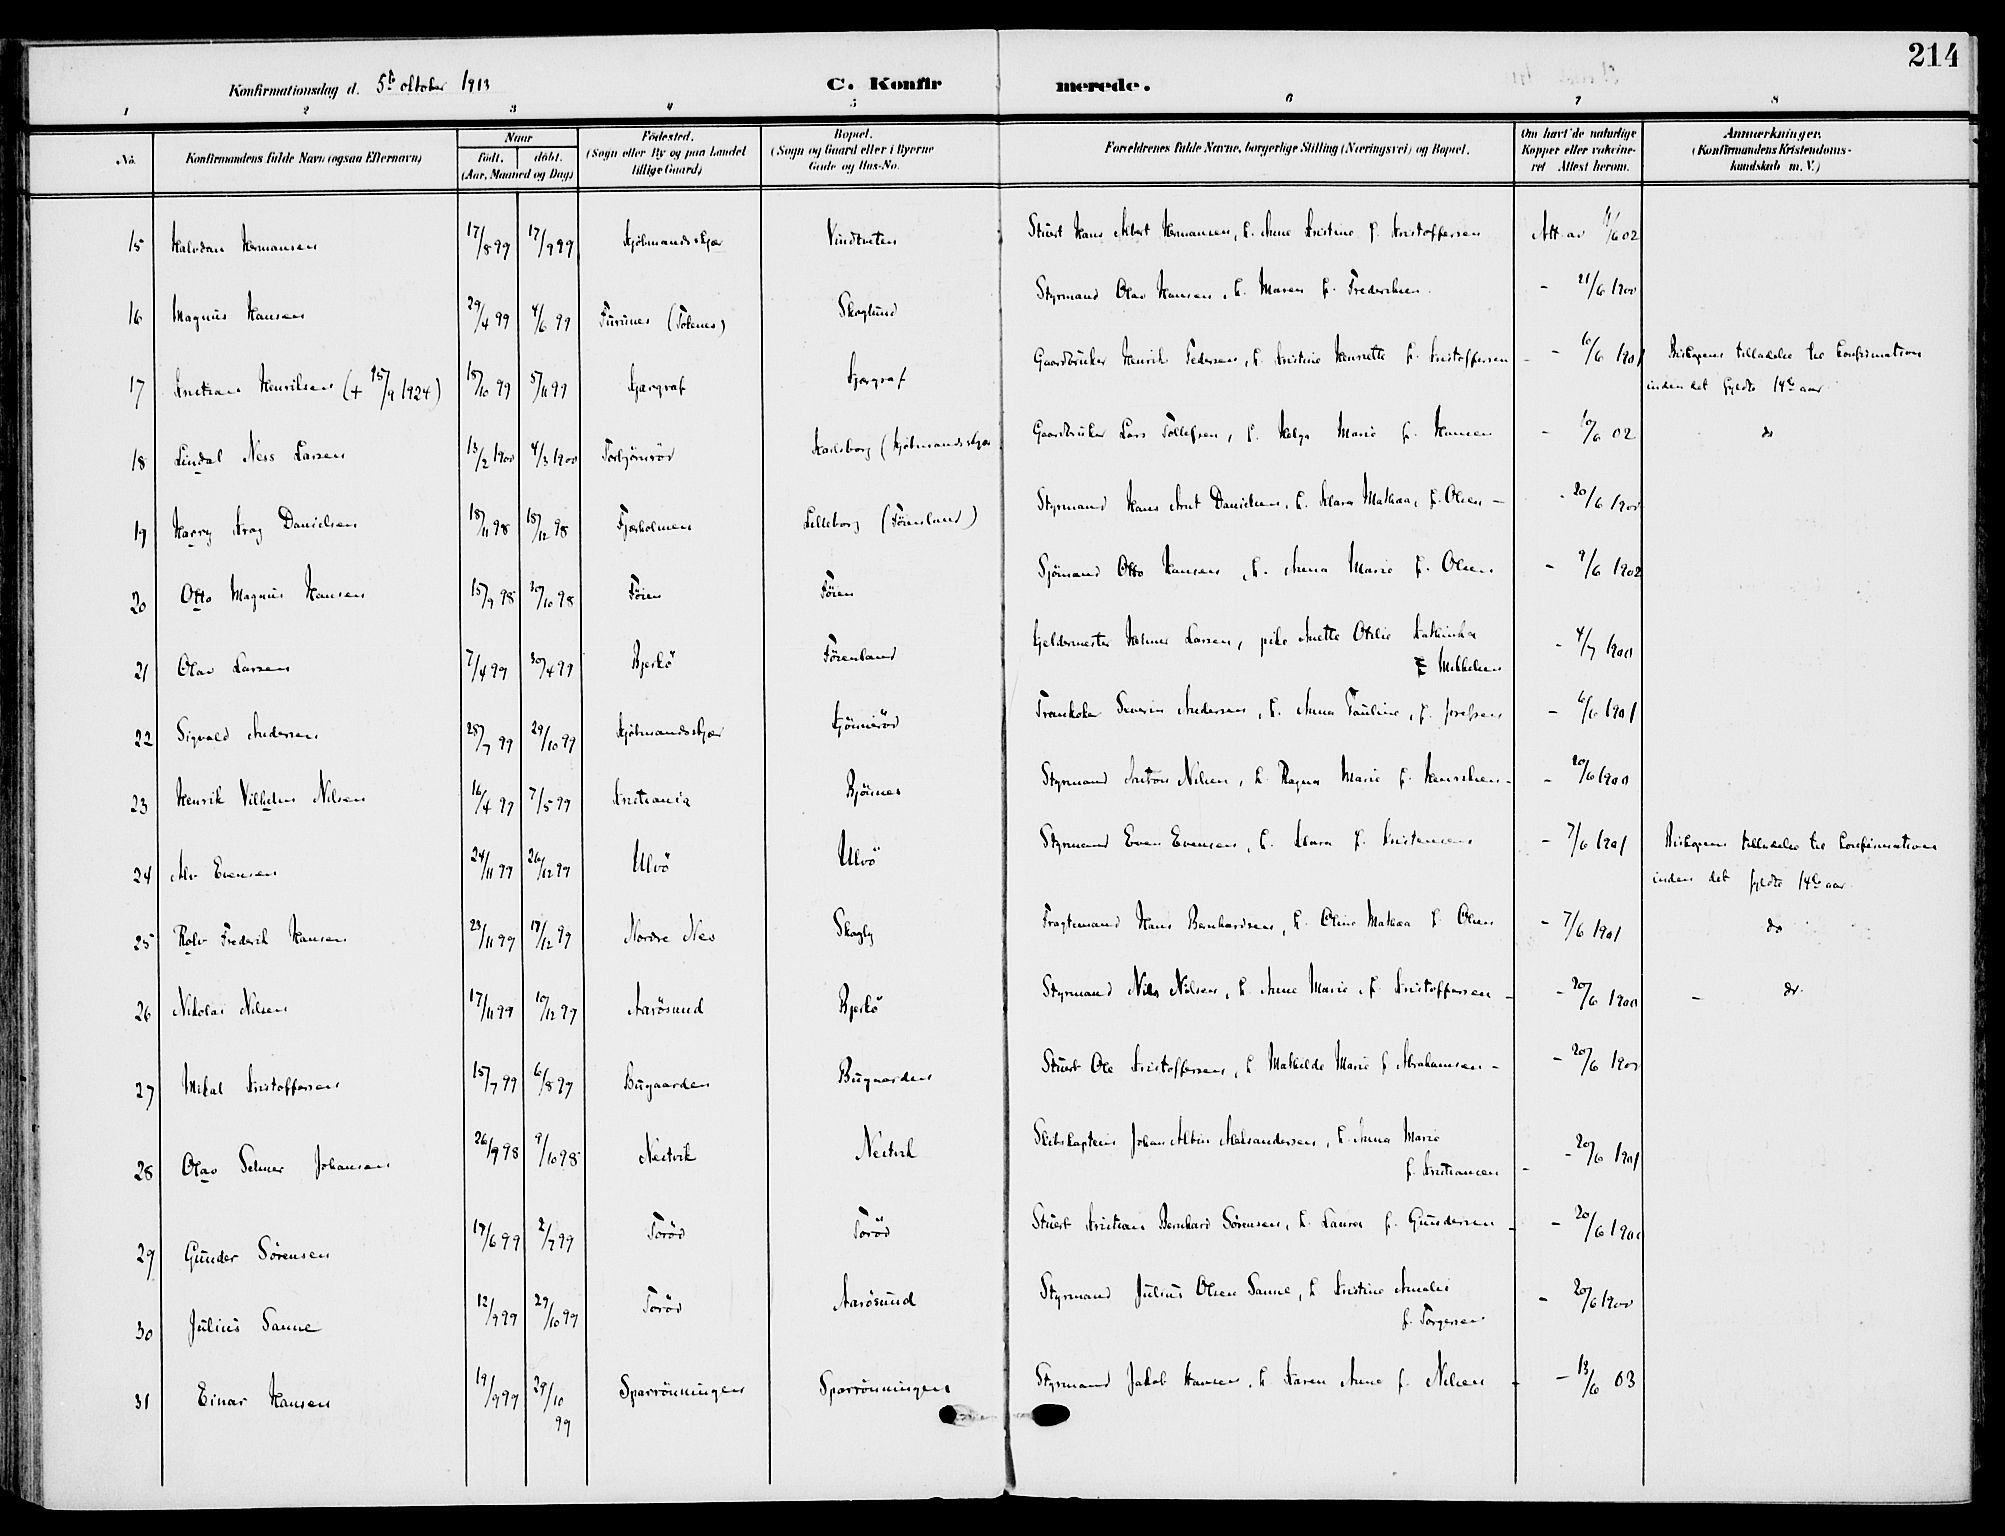 214
Konfirmationsdag d. 5te oktober 1913
C. Konfirmerede.
1 2 3 4 5 6 7 8
No. Konfirmandens fulde Navn (ogsaa Efternavn) Naar født, døbt. (Aar, Maaned og Dag) Födested. (Sogn eller By og paa Landet tillige Gaard) Bopæl. (Sogn og Gaard eller i Byerne Gade og Hus-No. Forældrenes fulde Navne, borgerlige Stilling (Næringsvei) og Bopæl. Om havt de naturlige Kopper eller vakcineret Attest herom. Anmærkninger. (Konfirmandens Kristendomskundskab m. V.)
15 Halvdan Hermansen 17/8 99 17/9 99 Kjøbmandsskjær Vindtveten Stuert Hans Albert Hermansen, h. Anne Kristine f. Kristoffersen Att. av 9/6 02
16 Magnus Hansen 29/4 99 4/6 99 Furunes (Tolenes) Skoglund Styrmand Olav Hansen, h. Maren f. Fredriksen - 21/6 1900
17 Kristian Henriksen (+ 25/9 1924) 15/10 99 5/11 99 Kjærgraf Kjærgraf Gaardbruker Henrik Pedersen, h. Kristine Henriette f. Kristoffersen - 10/6 1901 Biskopens tilladelse til konfirmation
inden det fyldte 14de aar
18 Lindal Ness Larsen 13/2 1900 4/3 1900 Torbjørnrød Karlsborg (Kjøbmandsskjær Gaardbruker Lars Tollefsen, h. Helga Marie f. Hansen - 10/6 02 do
19 Harry Krag Danielsen 18/11 98 18/12 98 Fjærholmen Lilleborg (Føienland) Styrmand Hans Arnt Danielsen, h. Klara Mathea, f. Olsen - 20/6 1900
20 Otto Magnus Hansen 15/9 98 30/10 98 Föien Föien Sjömand Otto Hansen, h. Anna Marie f. Olsen - 9/6 1902
21 Olav Larsen 7/4 99 30/4 99 Bjerkö Föienland Kjeldermester Helmer Larsen, pike Anette Otilie Kathinka
f. Mikkelsen - 4/7 1900
22 Sigvald Andersen 25/7 99 29/10 99 Kjøbmandsskjær Kjønnerød Trankoker Severin Andersen, h. Anna Pauline, f. Josefsen - 6/6 1901
23 Henrik Vilhelm Nilsen 16/4 99 7/5 99 Kristiania Bjørnes Styrmand Anton Nilsen, h. Ragna Marie f. Henriksen - 20/6 1900
24 Alv Evensen 24/11 99 26/12 99 Ulvö Ulvö Styrmand Even Evensen, h. Klara f. Kristensen - 7/6 1901 Biskopens tilladelse til konfirmation
inden det fyldte 14de aar
25 Rolv Frederik Hansen 23/11 99 17/12 99 Nordre Nes Skogly Fragtemand Hans Bernhardsen, h. Oline Mathea f. Olsen - 7/6 1901 do
26 Nikolai Nilsen 17/11 99 10/12 99 Aarösund Bjerkö Styrmand Nils Nilsen, h. Anne Marie f. Kristoffersen - 20/6 1900 - do.
27 Mikal Kristoffersen 15/7 99 6/8 99 Bugaarden Bugaarden Stuert Ole Kristoffersen, h. Mathilde Marie f. Abrahamsen - 20/6 1900
28 Olav Selmer Johansen 26/9 98 9/10 98 Nestvik Nestvik Skibskaptein Johan Albin Aleksandersen, h. Anna Marie
f. Kristiansen - 20/6 1901
29 Gunder Sörensen 17/6 99 2/7 99 Toröd Toröd Stuert Kristian Bernhard Sörensen, h. Laura f. Gundersen - 20/6 1900
30 Julius Sanne 12/9 99 29/10 99 Toröd Aarösund Styrmand Julius Olsen Sanne, h. Kristine Amalie
f. Torgersen - 20/6 1900
31 Einar Hansen 19/9 99 29/10 99 Sparrönningen Sparrönningen Styrmand Jakob Hansen, h. Karen Anne f. Nilsen - 13/6 03